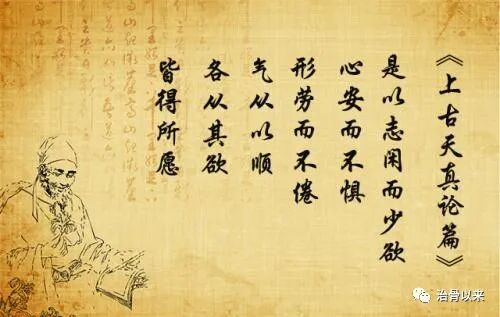 《上古天真论篇》
是以志闲而少欲
心安而不惧
形劳而不倦
气从以顺
各从其欲
皆得所愿
治骨以来